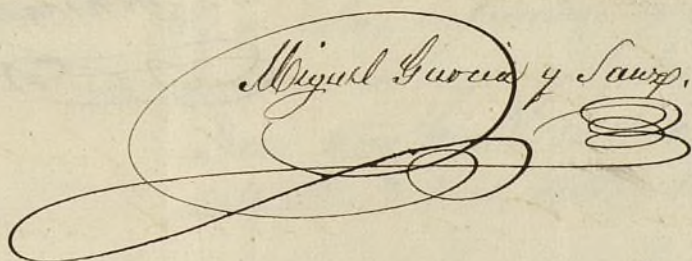 Miguel Garcia y Sanz.